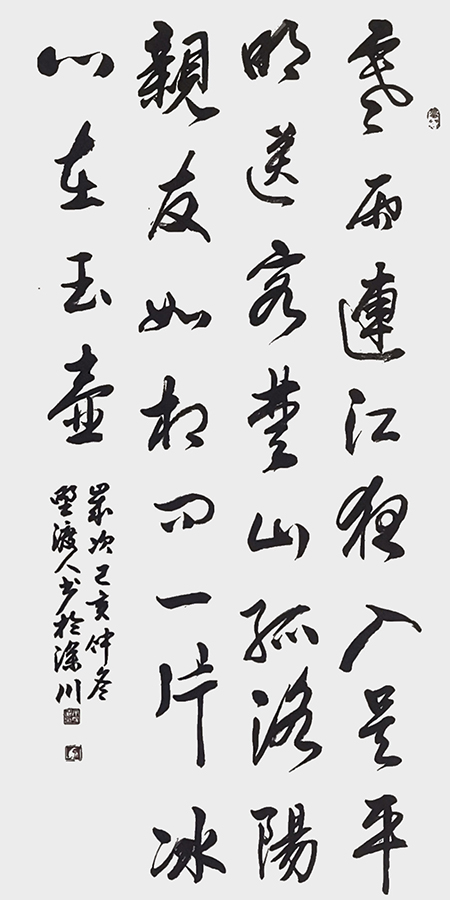 寒雨連江夜入吳平
明送客楚山孤洛陽
親友如相问一片冰
心在玉壺
歲次己亥仲冬
渡人书於滁川